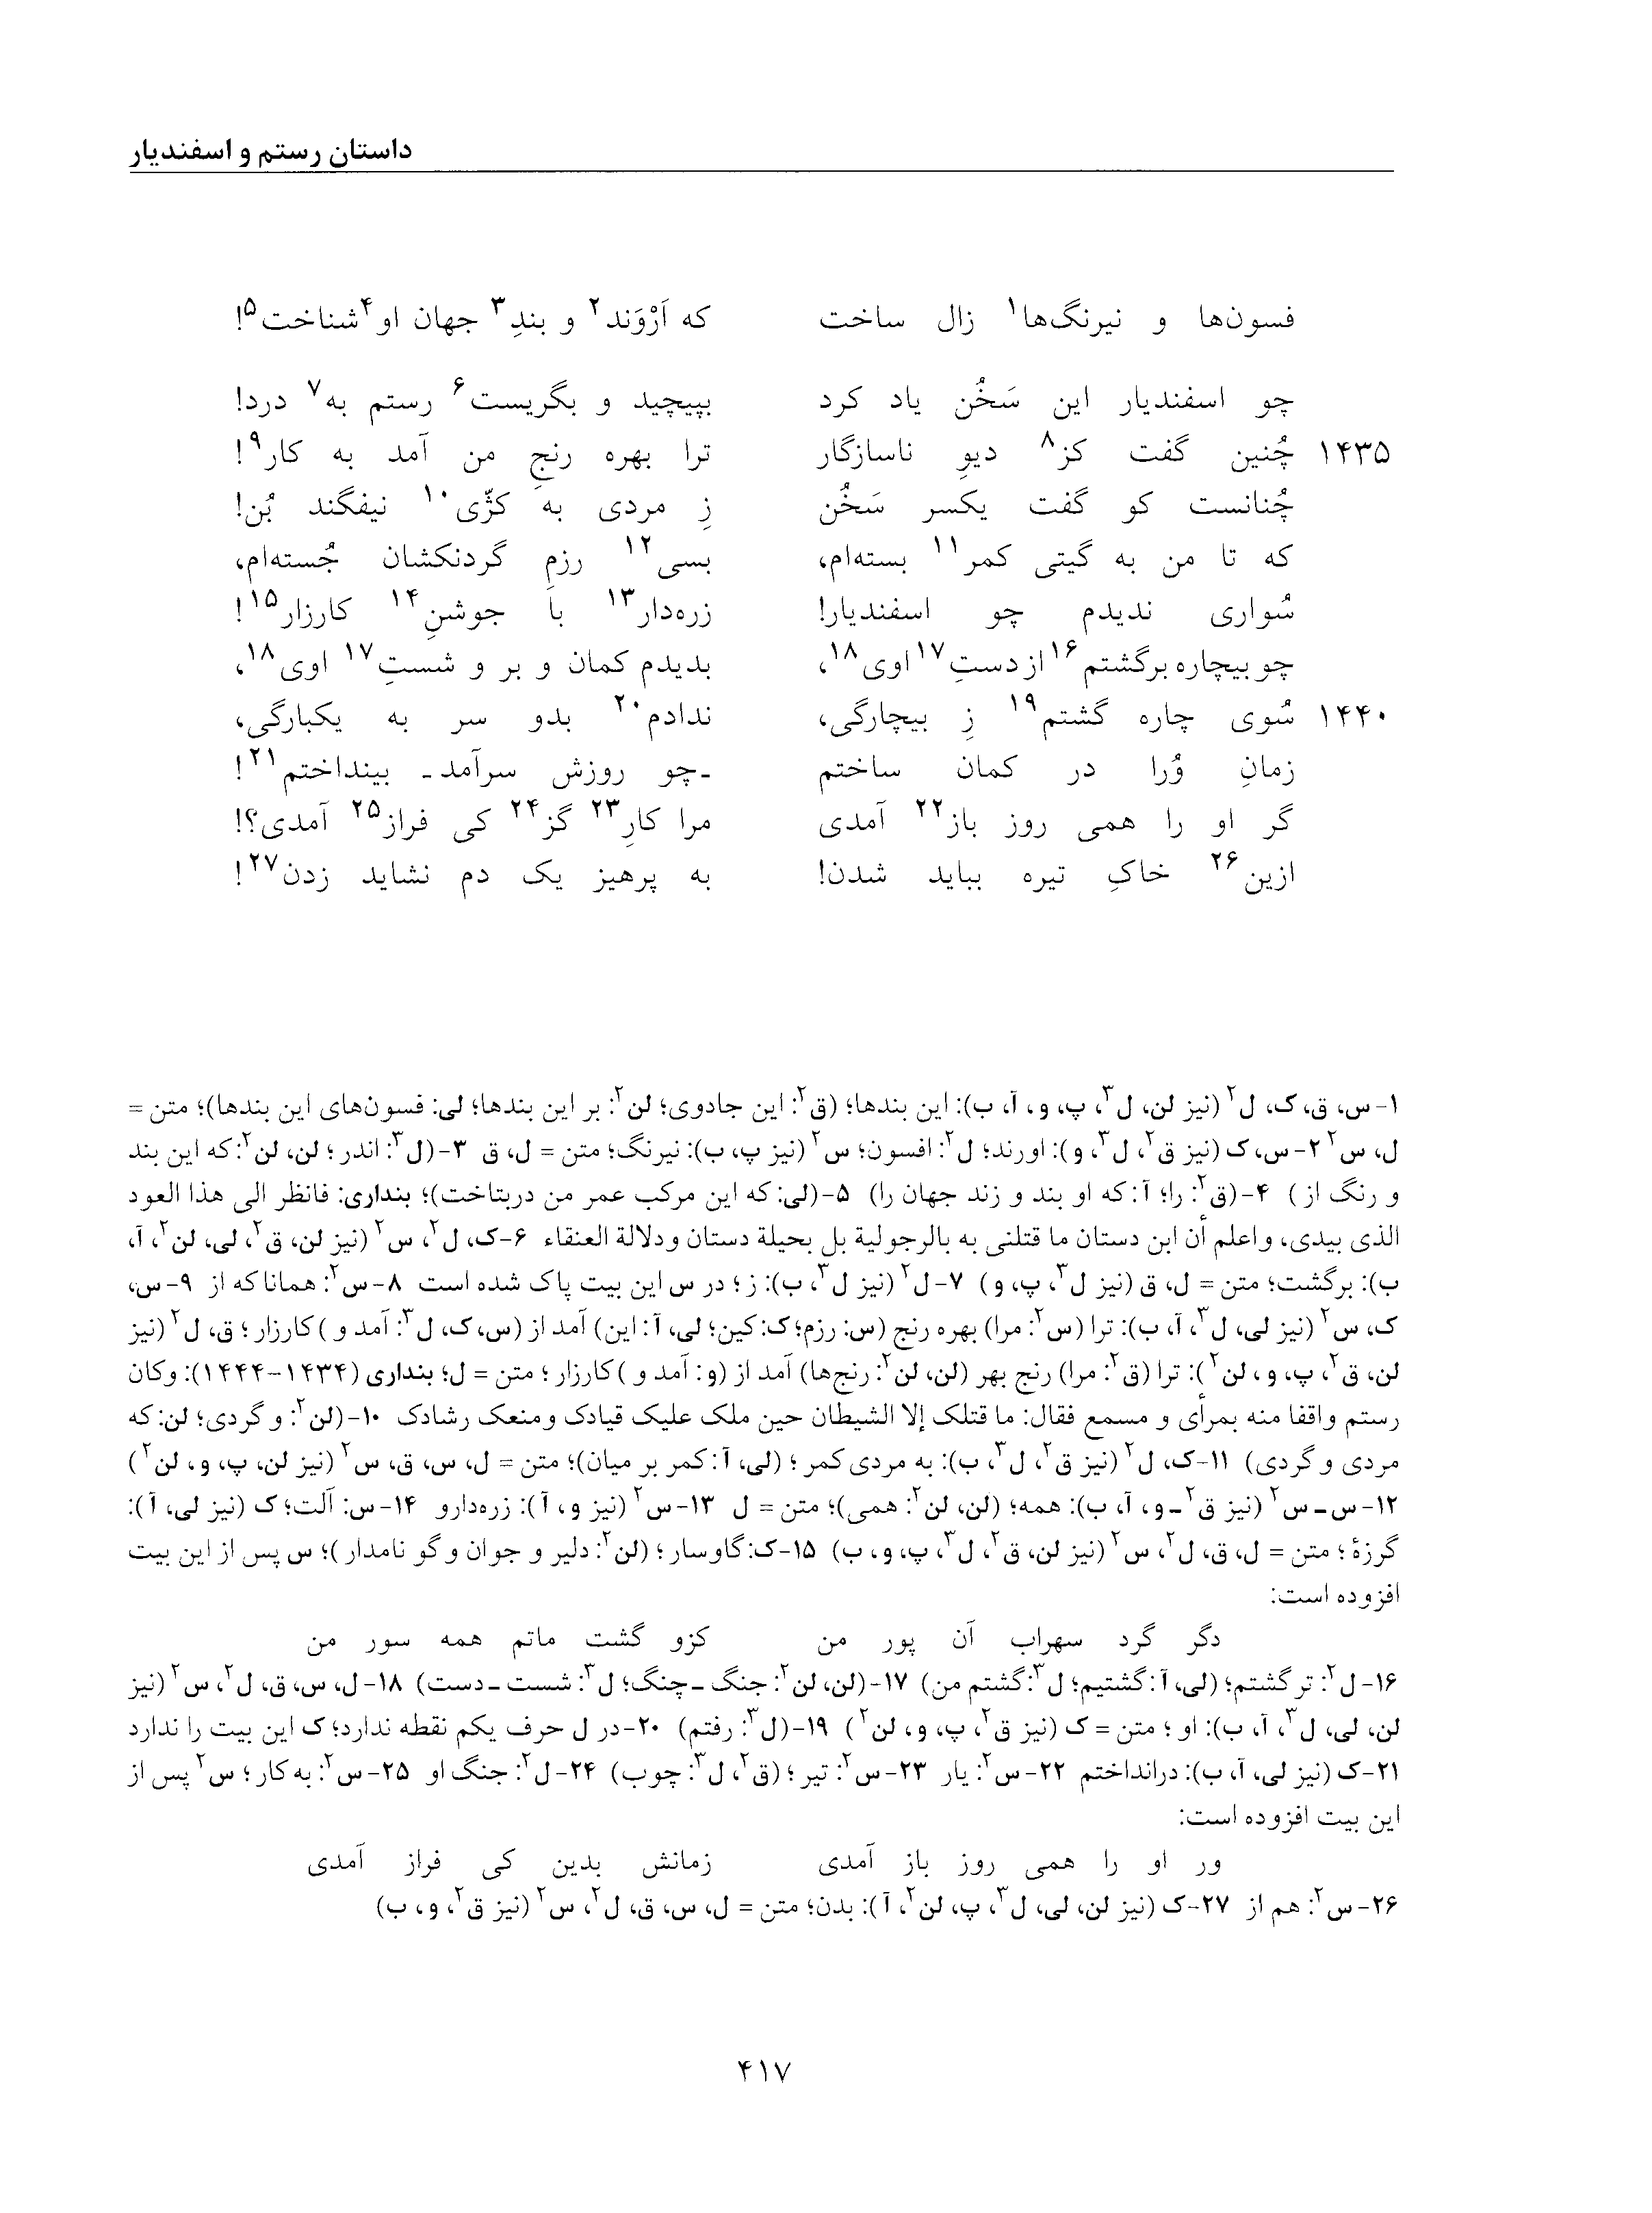 داستان رستم و اسفندیار
فسون‌ها و نیرنگ‌ها۱ زال ساخت که اَرْوَند۲ و بندِ۳ جهان او۴ شناخت۵!
چو اسفندیار این سَخُن یاد کرد بپیچید و بگریست۶ رستم به۷ درد!
۱۴۳۵ چُنین گفت کز۸ دیوِ ناسازگار ترا بهره رنجِ من آمد به کار۹!
چُنانست کو گفت یکسر سَخُن زِ مردی به کژّی۱۰ نیفگند بُن!
که تا من به گیتی کمر۱۱ بسته‌ام، بسی۱۲ رزمِ گردنکشان جُسته‌ام،
سُواری ندیدم چو اسفندیار! زره‌دار۱۳ با جوشنِ۱۴ کارزار۱۵!
چو بیچاره برگشتم۱۶ از دستِ۱۷ اوی۱۸، بدیدم کمان و بر و شستِ۱۷ اوی۱۸،
۱۴۴۰ سُوی چاره گشتم۱۹ زِ بیچارگی، ندادم۲۰ بدو سر به یکبارگی،
زمانِ وُرا در کمان ساختم ـ‌چو روزش سرآمد‌ـ بینداختم۲۱!
گر او را همی روز باز۲۲ آمدی مرا کارِ۲۳ گز۲۴ کی فراز۲۵ آمدی؟!
ازین۲۶ خاکِ تیره بباید شدن! به پرهیز یک دم نشاید زدن۲۷!
۱-س، ق، ک، ل۲ (نیز لن، ل۳، پ، و، آ، ب): این بندها؛ (ق۲: این جادوی؛ لن۲: بر این بندها؛ لی: فسون‌های این بندها)؛ متن =
ل، س۲ ۲-س، ک (نیز ق۲، ل۳، و): اورند؛ ل۲: افسون؛ س۲ (نیز پ، ب): نیرنگ؛ متن = ل، ق ۳-(ل۳: اندر؛ لن، لن۲: که این بند
و رنگ از) ۴-(ق۲: را؛ آ: که او بند و زند جهان را) ۵-(لی: که این مرکب عمر من دربتاخت)؛ بنداری: فانظر الی هذا العود
الذی بیدی، واعلم أن ابن دستان ما قتلنی به بالرجولیة بل بحیلة دستان ودلالة العنقاء ۶-ک، ل۲، س۲ (نیز لن، ق۲، لی، لن۲، آ،
ب): برگشت؛ متن = ل، ق (نیز ل۳، پ، و) ۷-ل۲ (نیز ل۳، ب): ز؛ در س این بیت پاک شده است ۸-س۲: همانا که از ۹-س،
ک، س۲ (نیز لی، ل۳، آ، ب): ترا (س۲: مرا) بهره رنج (س: رزم؛ ک: کین؛ لی، آ: این) آمد از (س، ک، ل۳: آمد و) کارزار؛ ق، ل۲ (نیز
لن، ق۲، پ، و، لن۲): ترا (ق۲: مرا) رنج بهر (لن، لن۲: رنج‌ها) آمد از (و: آمد و) کارزار؛ متن = ل؛ بنداری (۱۴۳۴-۱۴۴۴): وکان
رستم واقفا منه بمرأی و مسمع فقال: ما قتلک إلا الشیطان حین ملک علیک قیادک ومنعک رشادک ۱۰-(لن۲: و گردی؛ لن: که
مردی و گردی) ۱۱-ک، ل۲ (نیز ق۲، ل۳، ب): به مردی کمر؛ (لی، آ: کمر بر میان)؛ متن = ل، س، ق، س۲ (نیز لن، پ، و، لن۲)
۱۲-س-س۲ (نیز ق۲-و، آ، ب): همه؛ (لن، لن۲: همی)؛ متن = ل ۱۳-س۲ (نیز و، آ): زره‌دارو ۱۴-س: آلت؛ ک (نیز لی، آ):
گرزهٔ؛ متن = ل، ق، ل۲، س۲ (نیز لن، ق۲، ل۳، پ، و، ب) ۱۵-ک: گاوسار؛ (لن۲: دلیر و جوان و گو نامدار)؛ س پس از این بیت
افزوده است:
دگر گرد سهراب آن پور من کزو گشت ماتم همه سور من
۱۶-ل۲: تر گشتم؛ (لی، آ: گشتیم؛ ل۳: گشتم من) ۱۷-(لن، لن۲: جنگ-چنگ؛ ل۳: شست-دست) ۱۸-ل، س، ق، ل۲، س۲ (نیز
لن، لی، ل۳، آ، ب): او؛ متن = ک (نیز ق۲، پ، و، لن۲) ۱۹-(ل۳: رفتم) ۲۰-در ل حرف یکم نقطه ندارد؛ ک این بیت را ندارد
۲۱-ک (نیز لی، آ، ب): درانداختم ۲۲-س۲: یار ۲۳-س۲: تیر؛ (ق۲، ل۳: چوب) ۲۴-ل۲: جنگ او ۲۵-س۲: به کار؛ س۲ پس از
این بیت افزوده است:
ور او را همی روز باز آمدی زمانش بدین کی فراز آمدی
۲۶-س۲: هم از ۲۷-ک (نیز لن، لی، ل۳، پ، لن۲، آ): بدن؛ متن = ل، س، ق، ل۲، س۲ (نیز ق۲، و، ب)
۴۱۷